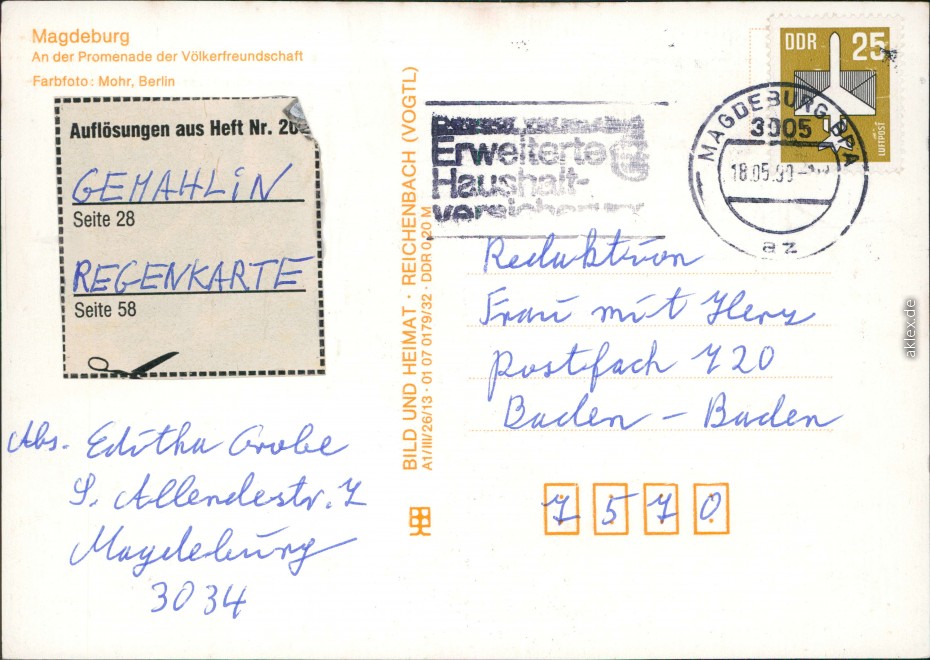 Magdeburg
An der Promenade der Völkerfreundschaft
Farbfoto: Mohr, Berlin
Auflösungen aus Heft Nr.
GEMAHLIN
Seite 28
REGENKARTE
Seite 58
Abs. Editha Grobe
S. Allendestr. 7
Magdeburg
3034
BILD UND HEIMAT · REICHENBACH (VOGTL)
A1/III/26/13 · 01 07 0179/32 · DDR 0,20 M
Erweiterte
Haushalt-
versicherung
MAGDEBURG BPA
3005
18.05.90
az
DDR 25
LUFTPOST
Redaktion
Frau mit Herz
Postfach 720
Baden - Baden
7570
aklex.de